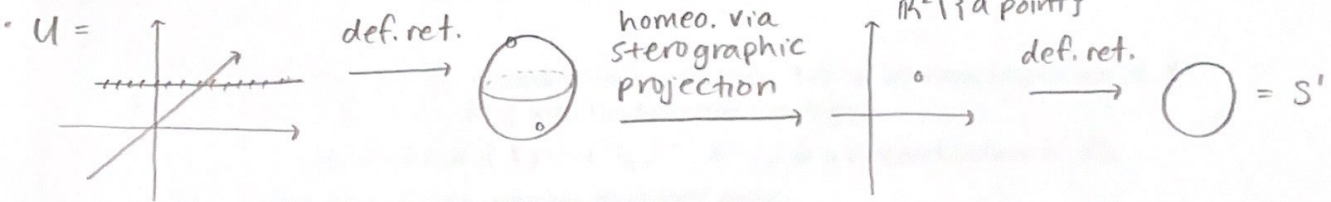 · U =
def. ret.
homeo. via
sterographic
projection
ℝ²\{a point}
def. ret.
= S¹